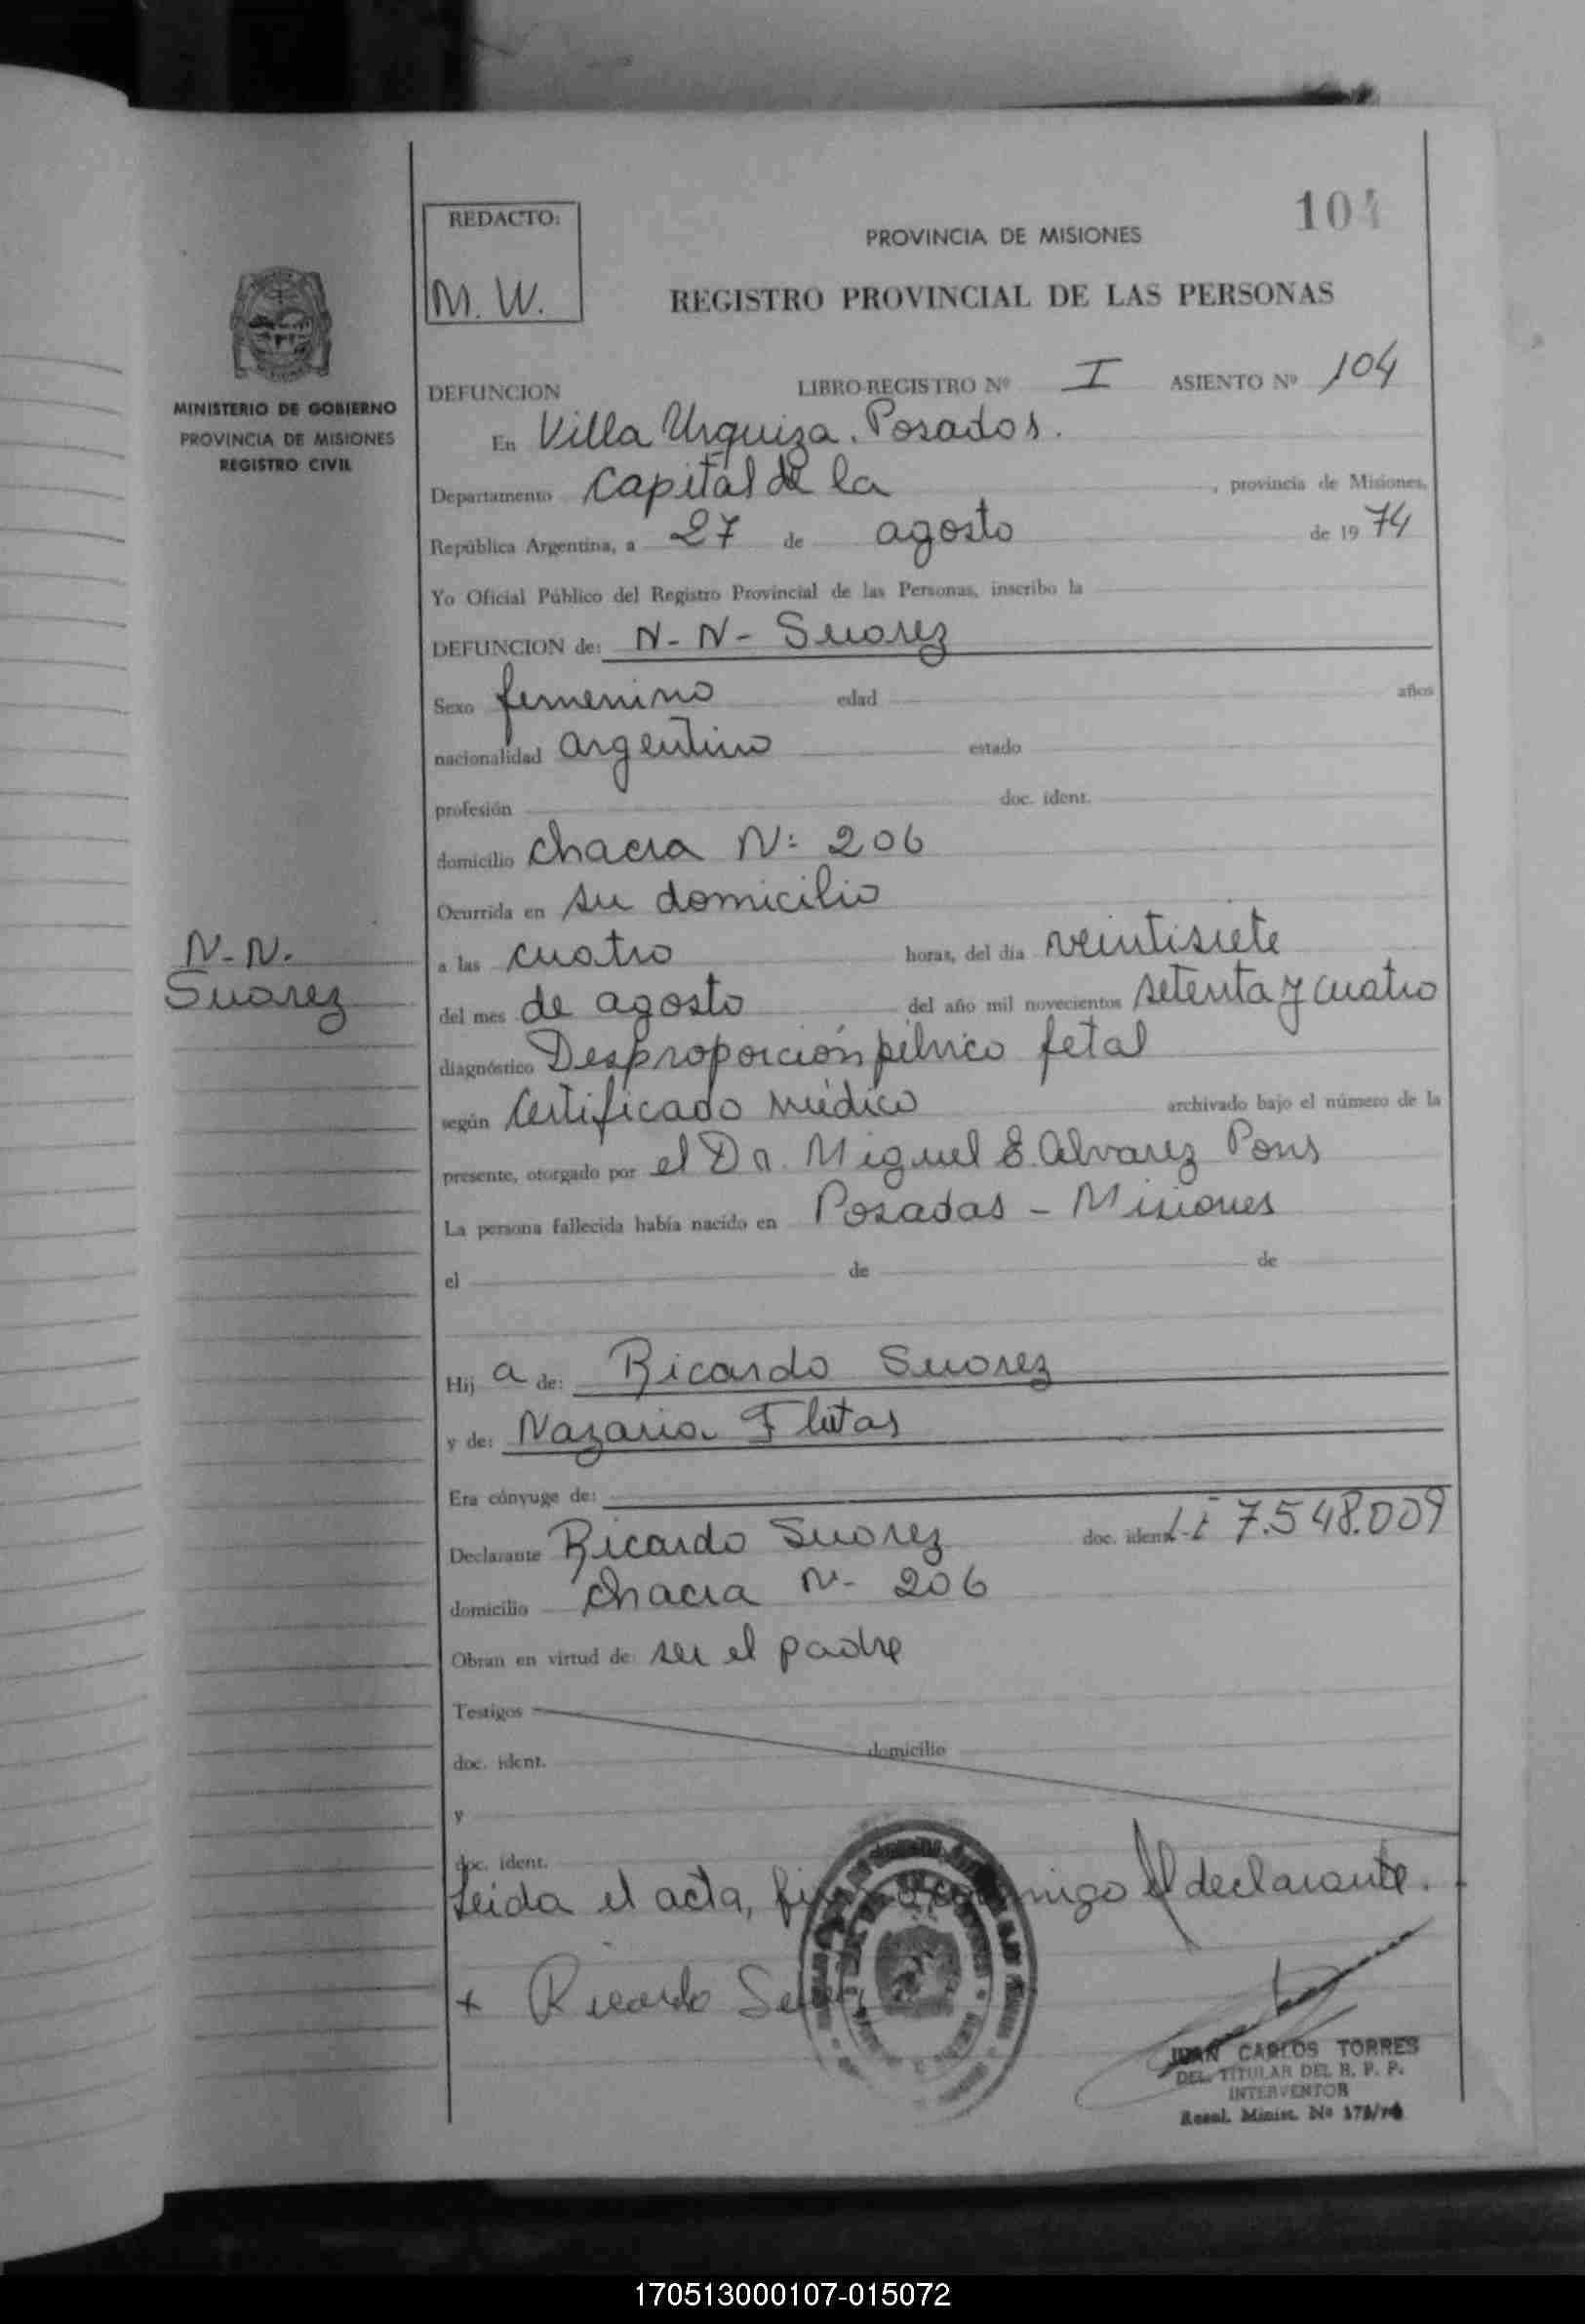 REDACTO:
M. W.
104
PROVINCIA DE MISIONES
REGISTRO PROVINCIAL DE LAS PERSONAS
MINISTERIO DE GOBIERNO
PROVINCIA DE MISIONES
REGISTRO CIVIL
DEFUNCION LIBRO-REGISTRO Nº I ASIENTO Nº 104
En Villa Urquiza. Posadas.
Departamento Capital de la , provincia de Misiones,
República Argentina, a 27 de agosto de 1974
Yo Oficial Público del Registro Provincial de las Personas, inscribo la
DEFUNCION de: N-N- Suarez
Sexo femenino edad años
nacionalidad argentino estado
profesión doc. ident.
domicilio chacra N: 206
Ocurrida en su domicilio
N-N.
Suarez
a las cuatro horas, del día veintisiete
del mes de agosto del año mil novecientos setenta y cuatro
diagnóstico Desproporción pélvico fetal
según Certificado médico archivado bajo el número de la
presente, otorgado por el Dr. Miguel E. Alvarez Pons
La persona fallecida había nacido en Posadas - Misiones
el de de
Hij a de: Ricardo Suarez
y de: Nazaria Fletas
Era cónyuge de:
Declarante Ricardo Suarez doc. ident. 7.548.009
domicilio chacra N- 206
Obran en virtud de ser el padre
Testigos
doc. ident. domicilio
y
doc. ident.
Leida el acta, conmigo el declarante.
x Ricardo
JUAN CARLOS TORRES
DEL. TITULAR DEL R. P. P.
INTERVENTOR
Resol. Minist. No
170513000107-015072